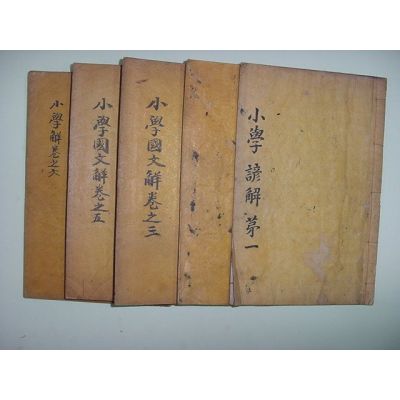 小學諺解 第一
小學國文解卷之三
小學國文解卷之五
小學解卷之六